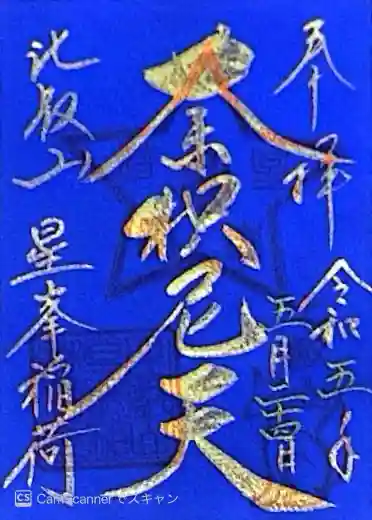 奉拝 令和五年
五月二十四日
荼枳尼天
比叡山 星峯稲荷
CS CamScannerでスキャン